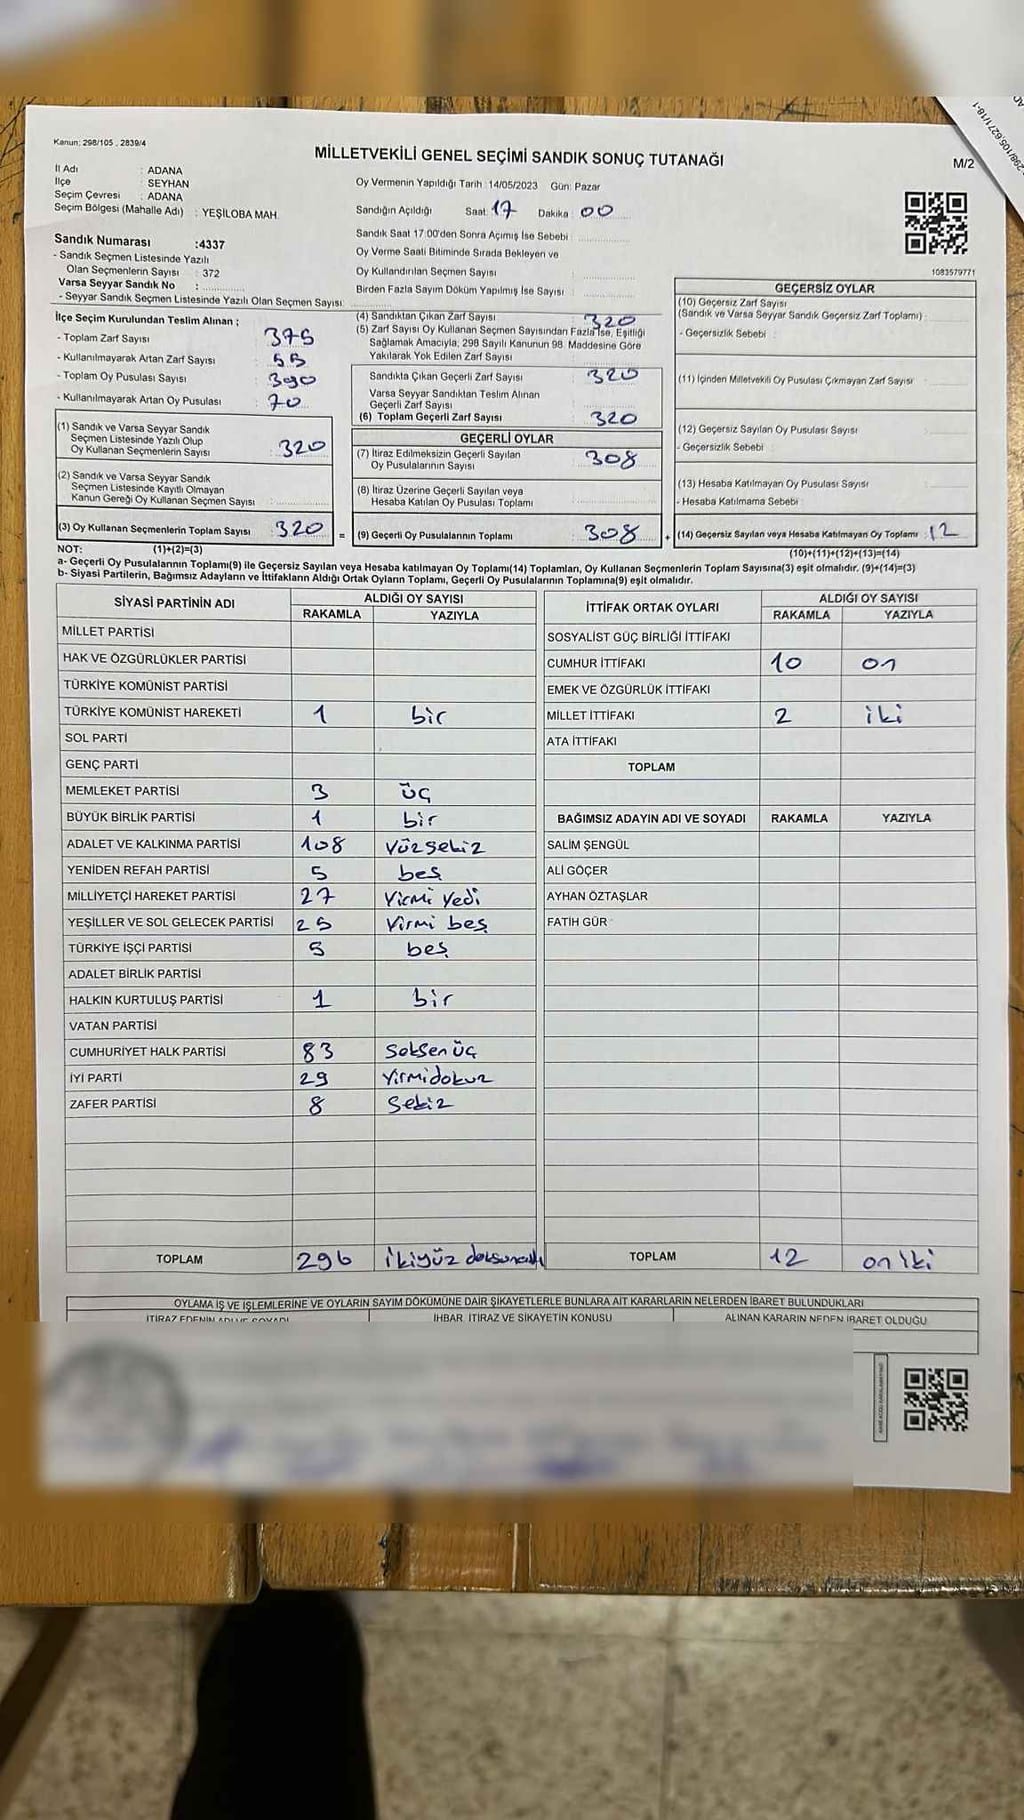 Kanun: 298/105 , 2839/4
298/105,6271/18-1
MİLLETVEKİLİ GENEL SEÇİMİ SANDIK SONUÇ TUTANAĞI
M/2
İl Adı : ADANA
İlçe : SEYHAN
Seçim Çevresi : ADANA
Seçim Bölgesi (Mahalle Adı) : YEŞİLOBA MAH.
Oy Vermenin Yapıldığı Tarih :14/05/2023 Gün: Pazar
Sandığın Açıldığı Saat: 17 Dakika : 00
Sandık Saat 17:00'den Sonra Açımış İse Sebebi :
Oy Verme Saati Bitiminde Sırada Bekleyen ve
Oy Kullandırılan Seçmen Sayısı :
Birden Fazla Sayım Döküm Yapılmış İse Sayısı :
1083579771
Sandık Numarası :4337
- Sandık Seçmen Listesinde Yazılı
Olan Seçmenlerin Sayısı : 372
Varsa Seyyar Sandık No :
- Seyyar Sandık Seçmen Listesinde Yazılı Olan Seçmen Sayısı:
İlçe Seçim Kurulundan Teslim Alınan ;
- Toplam Zarf Sayısı : 375
- Kullanılmayarak Artan Zarf Sayısı : 55
- Toplam Oy Pusulası Sayısı : 390
- Kullanılmayarak Artan Oy Pusulası : 70
(1) Sandık ve Varsa Seyyar Sandık
Seçmen Listesinde Yazılı Olup
Oy Kullanan Seçmenlerin Sayısı : 320
(2) Sandık ve Varsa Seyyar Sandık
Seçmen Listesinde Kayıtlı Olmayan
Kanun Gereği Oy Kullanan Seçmen Sayısı :
(3) Oy Kullanan Seçmenlerin Toplam Sayısı : 320 =
(4) Sandıktan Çıkan Zarf Sayısı : 320
(5) Zarf Sayısı Oy Kullanan Seçmen Sayısından Fazla İse, Eşitliği
Sağlamak Amacıyla; 298 Sayılı Kanunun 98. Maddesine Göre
Yakılarak Yok Edilen Zarf Sayısı :
Sandıkta Çıkan Geçerli Zarf Sayısı : 320
Varsa Seyyar Sandıktan Teslim Alınan
Geçerli Zarf Sayısı :
(6) Toplam Geçerli Zarf Sayısı : 320
GEÇERLİ OYLAR
(7) İtiraz Edilmeksizin Geçerli Sayılan
Oy Pusulalarının Sayısı : 308
(8) İtiraz Üzerine Geçerli Sayılan veya
Hesaba Katılan Oy Pusulası Toplamı :
(9) Geçerli Oy Pusulalarının Toplamı : 308 +
GEÇERSİZ OYLAR
(10) Geçersiz Zarf Sayısı
(Sandık ve Varsa Seyyar Sandık Geçersiz Zarf Toplamı) :
- Geçersizlik Sebebi :
(11) İçinden Milletvekili Oy Pusulası Çıkmayan Zarf Sayısı :
(12) Geçersiz Sayılan Oy Pusulası Sayısı :
- Geçersizlik Sebebi :
(13) Hesaba Katılmayan Oy Pusulası Sayısı :
- Hesaba Katılmama Sebebi :
(14) Geçersiz Sayılan veya Hesaba Katılmayan Oy Toplamı : 12
NOT: (1)+(2)=(3)
(10)+(11)+(12)+(13)=(14)
a- Geçerli Oy Pusulalarının Toplamı(9) ile Geçersiz Sayılan veya Hesaba katılmayan Oy Toplamı(14) Toplamları, Oy Kullanan Seçmenlerin Toplam Sayısına(3) eşit olmalıdır. (9)+(14)=(3)
b- Siyasi Partilerin, Bağımsız Adayların ve İttifakların Aldığı Ortak Oyların Toplamı, Geçerli Oy Pusulalarının Toplamına(9) eşit olmalıdır.
SİYASİ PARTİNİN ADI ALDIĞI OY SAYISI
RAKAMLA YAZIYLA
MİLLET PARTİSİ
HAK VE ÖZGÜRLÜKLER PARTİSİ
TÜRKİYE KOMÜNİST PARTİSİ
TÜRKİYE KOMÜNİST HAREKETİ 1 bir
SOL PARTİ
GENÇ PARTİ
MEMLEKET PARTİSİ 3 üç
BÜYÜK BİRLİK PARTİSİ 1 bir
ADALET VE KALKINMA PARTİSİ 108 yüzsekiz
YENİDEN REFAH PARTİSİ 5 beş
MİLLİYETÇİ HAREKET PARTİSİ 27 Yirmi yedi
YEŞİLLER VE SOL GELECEK PARTİSİ 25 Yirmi beş
TÜRKİYE İŞÇİ PARTİSİ 5 beş
ADALET BİRLİK PARTİSİ
HALKIN KURTULUŞ PARTİSİ 1 bir
VATAN PARTİSİ
CUMHURİYET HALK PARTİSİ 83 Seksen üç
İYİ PARTİ 29 Yirmidokuz
ZAFER PARTİSİ 8 Sekiz
TOPLAM 296 ikiyüz doksanaltı
İTTİFAK ORTAK OYLARI ALDIĞI OY SAYISI
RAKAMLA YAZIYLA
SOSYALİST GÜÇ BİRLİĞİ İTTİFAKI
CUMHUR İTTİFAKI 10 on
EMEK VE ÖZGÜRLÜK İTTİFAKI
MİLLET İTTİFAKI 2 iki
ATA İTTİFAKI
TOPLAM
BAĞIMSIZ ADAYIN ADI VE SOYADI RAKAMLA YAZIYLA
SALİM ŞENGÜL
ALİ GÖÇER
AYHAN ÖZTAŞLAR
FATİH GÜR
TOPLAM 12 on iki
OYLAMA İŞ VE İŞLEMLERİNE VE OYLARIN SAYIM DÖKÜMÜNE DAİR ŞİKAYETLERLE BUNLARA AİT KARARLARIN NELERDEN İBARET BULUNDUKLARI
İTİRAZ EDENİN ADI VE SOYADI İHBAR, İTİRAZ VE ŞİKAYETİN KONUSU ALINAN KARARIN NEDEN İBARET OLDUĞU